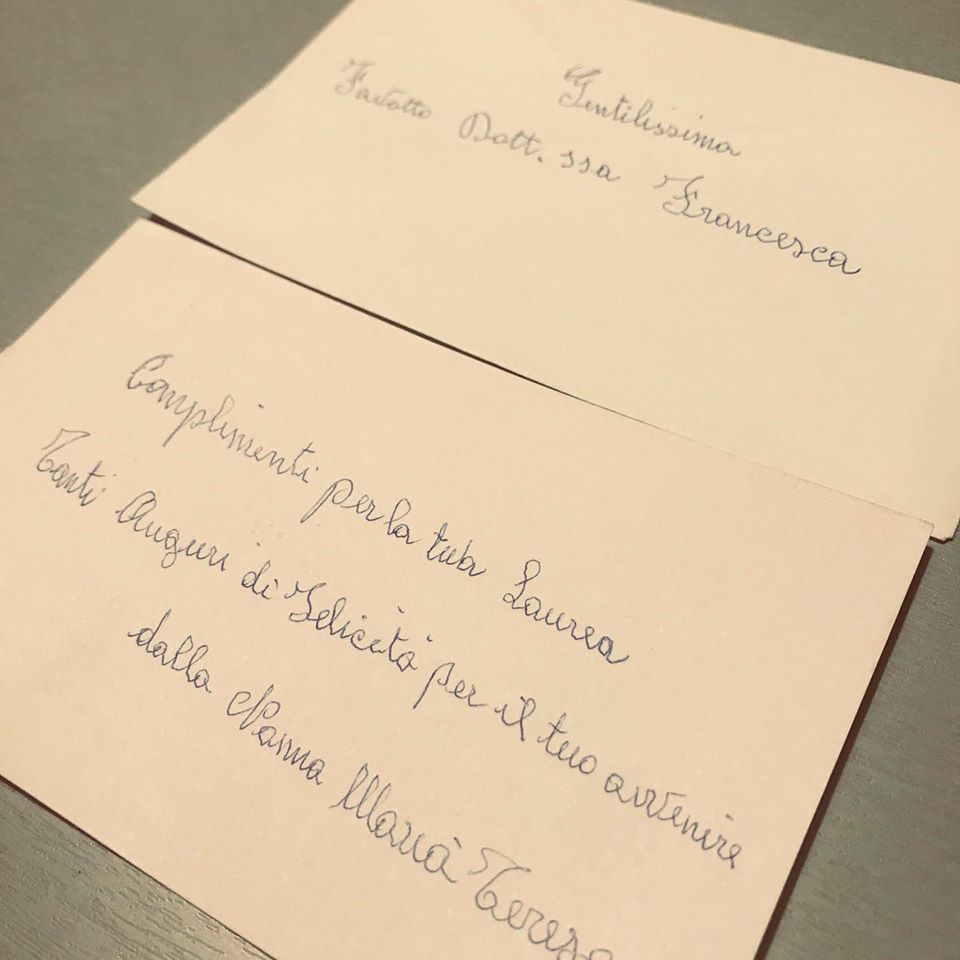 Gentilissima
Favotto Dott.ssa Francesca
Complimenti per la tua Laurea
Tanti Auguri di Felicità per il tuo avvenire
dalla Nonna Maria Teresa